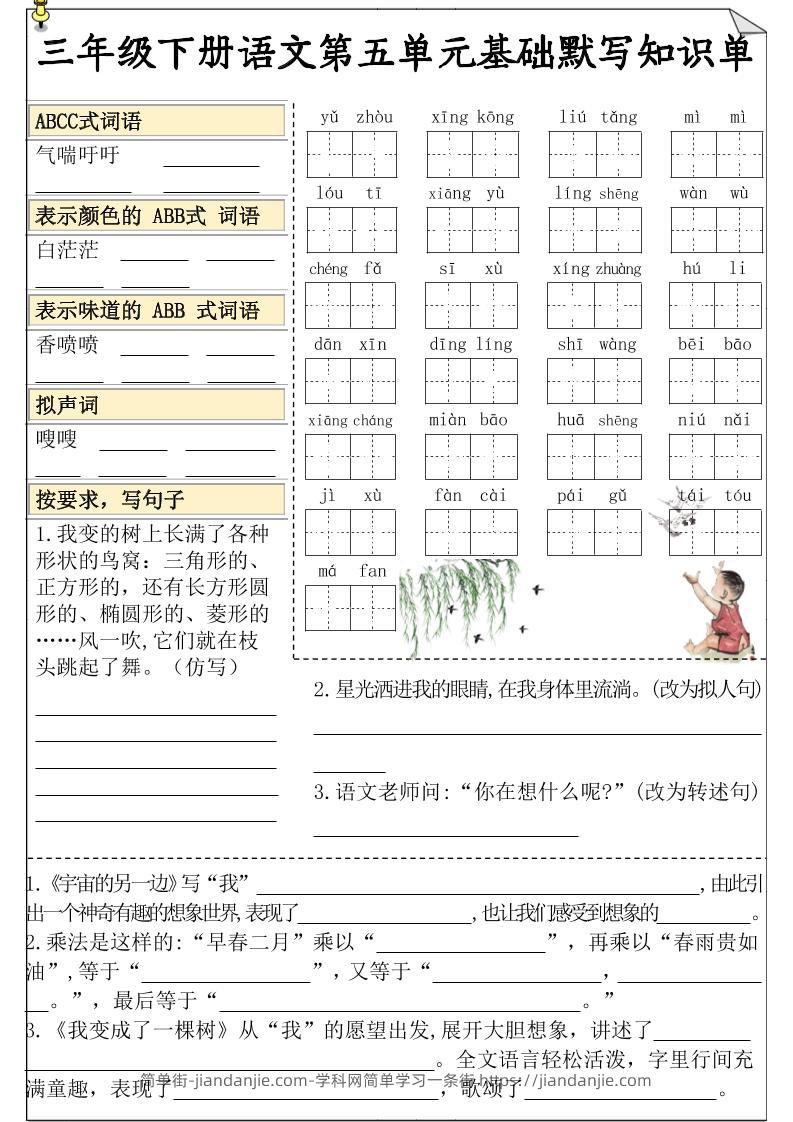 三年级下册语文第五单元基础默写知识单
ABCC式词语
气喘吁吁
表示颜色的 ABB式 词语
白茫茫
表示味道的 ABB 式词语
香喷喷
拟声词
嗖嗖
按要求，写句子
1.我变的树上长满了各种
形状的鸟窝：三角形的、
正方形的，还有长方形圆
形的、椭圆形的、菱形的
……风一吹,它们就在枝
头跳起了舞。（仿写）
yǔ zhòu xīng kōng liú tǎng mì mì
lóu tī xiāng yù líng shēng wàn wù
chéng fǎ sī xù xíng zhuàng hú li
dān xīn dīng líng shī wàng bēi bāo
xiāng cháng miàn bāo huā shēng niú nǎi
jì xù fàn cài pái gǔ tái tóu
má fan
2.星光洒进我的眼睛,在我身体里流淌。(改为拟人句)
3.语文老师问:“你在想什么呢?”(改为转述句)
1.《宇宙的另一边》写“我” ,由此引
出一个神奇有趣的想象世界,表现了 ,也让我们感受到想象的 。
2.乘法是这样的:“早春二月”乘以“ ”，再乘以“春雨贵如
油”,等于“ ”，又等于“ ,
。”，最后等于“ 。”
3.《我变成了一棵树》从“我”的愿望出发,展开大胆想象，讲述了
。全文语言轻松活泼，字里行间充
满童趣，表现了 ，歌颂了 。
简单街-jiandanjie.com-学科网简单学习一条街 https://jiandanjie.com